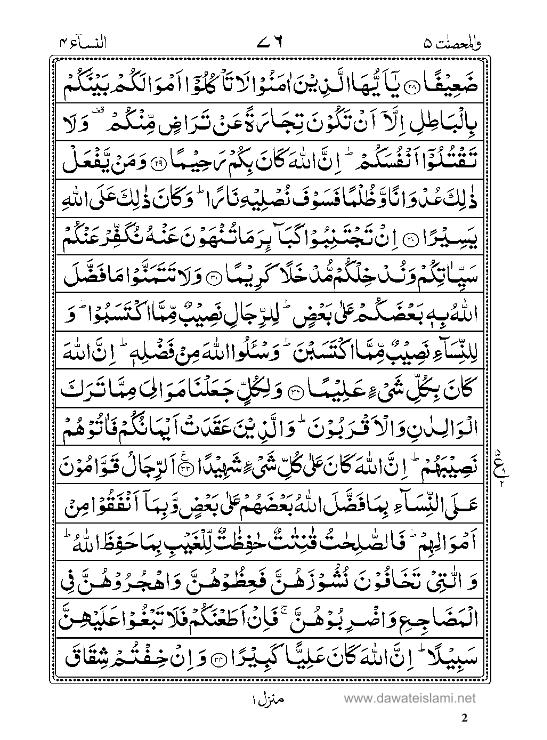 والمحصنت ۵
۷۶
النسآء ۴
ضَعِیۡفًا ﴿۲۸﴾ یٰۤاَیُّہَا الَّذِیۡنَ اٰمَنُوۡا لَا تَاۡکُلُوۡۤا اَمۡوَالَکُمۡ بَیۡنَکُمۡ
بِالۡبَاطِلِ اِلَّاۤ اَنۡ تَکُوۡنَ تِجَارَۃً عَنۡ تَرَاضٍ مِّنۡکُمۡ ۟ وَلَا
تَقۡتُلُوۡۤا اَنۡفُسَکُمۡ ؕ اِنَّ اللہَ کَانَ بِکُمۡ رَحِیۡمًا ﴿۲۹﴾ وَمَنۡ یَّفۡعَلۡ
ذٰلِکَ عُدۡوَانًا وَّظُلۡمًا فَسَوۡفَ نُصۡلِیۡہِ نَارًا ؕ وَکَانَ ذٰلِکَ عَلَی اللہِ
یَسِیۡرًا ﴿۳۰﴾ اِنۡ تَجۡتَنِبُوۡا کَبَآئِرَ مَا تُنۡہَوۡنَ عَنۡہُ نُکَفِّرۡ عَنۡکُمۡ
سَیِّاٰتِکُمۡ وَنُدۡخِلۡکُمۡ مُّدۡخَلًا کَرِیۡمًا ﴿۳۱﴾ وَلَا تَتَمَنَّوۡا مَا فَضَّلَ
اللہُ بِہٖ بَعۡضَکُمۡ عَلٰی بَعۡضٍ ؕ لِلرِّجَالِ نَصِیۡبٌ مِّمَّا اکۡتَسَبُوۡا ؕ وَ
لِلنِّسَآءِ نَصِیۡبٌ مِّمَّا اکۡتَسَبۡنَ ؕ وَسۡـَٔلُوا اللہَ مِنۡ فَضۡلِہٖ ؕ اِنَّ اللہَ
کَانَ بِکُلِّ شَیۡءٍ عَلِیۡمًا ﴿۳۲﴾ وَلِکُلٍّ جَعَلۡنَا مَوَالِیَ مِمَّا تَرَکَ
الۡوَالِدٰنِ وَالۡاَقۡرَبُوۡنَ ؕ وَالَّذِیۡنَ عَقَدَتۡ اَیۡمَانُکُمۡ فَاٰتُوۡہُمۡ
نَصِیۡبَہُمۡ ؕ اِنَّ اللہَ کَانَ عَلٰی کُلِّ شَیۡءٍ شَہِیۡدًا ﴿۳۳﴾ اَلرِّجَالُ قَوّٰمُوۡنَ
عَلَی النِّسَآءِ بِمَا فَضَّلَ اللہُ بَعۡضَہُمۡ عَلٰی بَعۡضٍ وَّبِمَاۤ اَنۡفَقُوۡا مِنۡ
اَمۡوَالِہِمۡ ؕ فَالصّٰلِحٰتُ قٰنِتٰتٌ حٰفِظٰتٌ لِّلۡغَیۡبِ بِمَا حَفِظَ اللہُ ؕ
وَ الّٰتِیۡ تَخَافُوۡنَ نُشُوۡزَہُنَّ فَعِظُوۡہُنَّ وَاہۡجُرُوۡہُنَّ فِی
الۡمَضَاجِعِ وَاضۡرِبُوۡہُنَّ ۚ فَاِنۡ اَطَعۡنَکُمۡ فَلَا تَبۡغُوۡا عَلَیۡہِنَّ
سَبِیۡلًا ؕ اِنَّ اللہَ کَانَ عَلِیًّا کَبِیۡرًا ﴿۳۴﴾ وَ اِنۡ خِفۡتُمۡ شِقَاقَ
منزل ۱
www.dawateislami.net
2